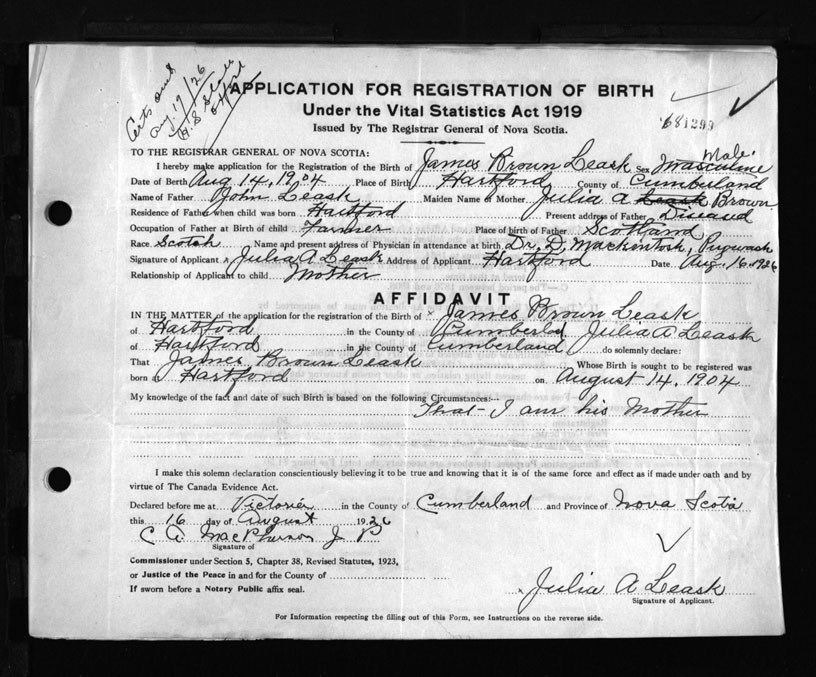 Certs and
Aug 19/26
H. S.
APPLICATION FOR REGISTRATION OF BIRTH
Under the Vital Statistics Act 1919
Issued by The Registrar General of Nova Scotia.
681299
TO THE REGISTRAR GENERAL OF NOVA SCOTIA:
Male.
I hereby make application for the Registration of the Birth of James Brown Leask Sex Masculine
Date of Birth Aug 14, 1904 Place of Birth Hartford County of Cumberland
Name of Father John Leask Maiden Name of Mother Julia A Leask Brown
Residence of Father when child was born Hartford Present address of Father Diseasd
Occupation of Father at Birth of child Farmer Place of birth of Father Scotland
Race Scotch Name and present address of Physician in attendance at birth Dr. D. Mackintosh, Pugwash
Signature of Applicant x Julia A Leask Address of Applicant Hartford Date Aug. 16. 1926
Relationship of Applicant to child Mother
AFFIDAVIT
IN THE MATTER of the application for the registration of the Birth of x James Brown Leask
of Hartford in the County of Cumberland Julia A Leask
of Hartford in the County of Cumberland do solemnly declare:
That James Brown Leask Whose Birth is sought to be registered was
born Hartford on August 14, 1904
My knowledge of the fact and date of such Birth is based on the following Circumstances:---
That - I am his Mother
I make this solemn declaration conscientiously believing it to be true and knowing that it is of the same force and effect as if made under oath and by
virtue of The Canada Evidence Act.
Declared before me at Victoria in the County of Cumberland and Province of Nova Scotia
this 16 day of August 1926
C A MacPherson J P
Signature of
Commissioner under Section 5, Chapter 38, Revised Statutes, 1923,
or Justice of the Peace in and for the County of
If sworn before a Notary Public affix seal.
x Julia A Leask
Signature of Applicant.
For Information respecting the filling out of this Form, see Instructions on the reverse side.